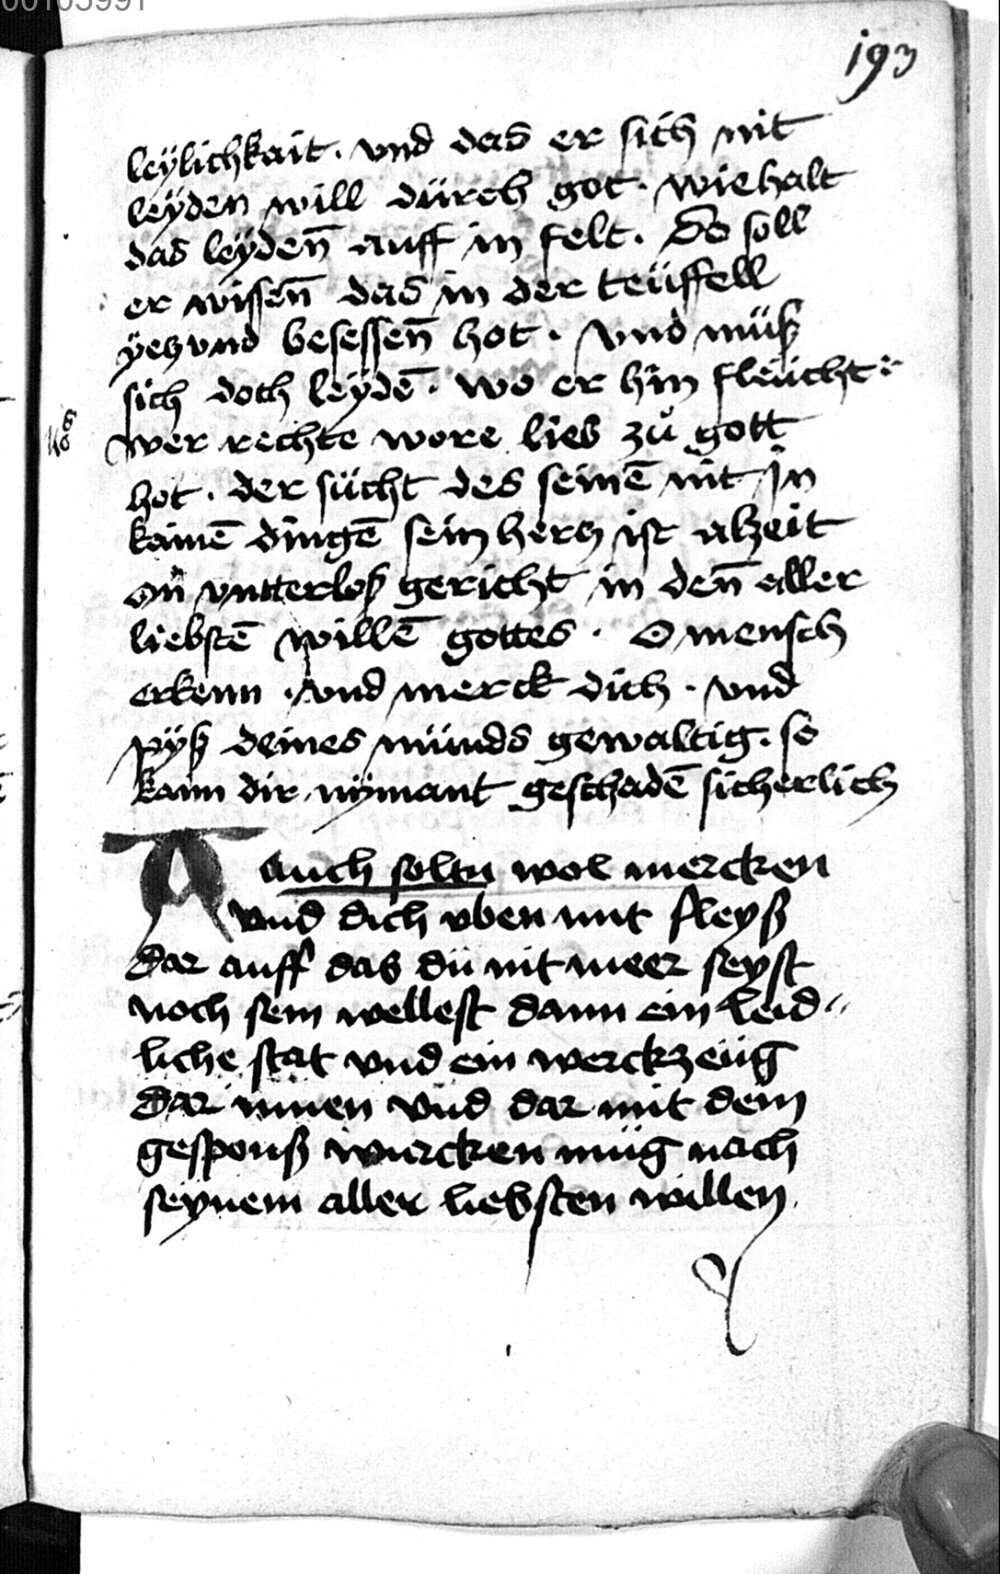 00103991
193
leÿlichkait. vnd das er sich nit
leÿden will dürch got. wie halt
das leÿdeñ auff in felt. So soll
er wisseñ das in der teüffell
ÿetzvnd besesseñ hot. vnd müß
sich doch leÿdē. wo er hin fleücht
wer rechte wore lieb zů gott
hot. der sücht des seinē nit in
kainē dingē sein hertz ist alzeit
on vnterloß gericht in deñ aller
liebstē willē gottes. O mensch
erkenn. vnd merck dich. vnd
pÿß deines münds gewaltig. so
kann dir nÿmant geschadē sicherlich
Auch soltu wol mercken
vnd dich vben mit fleyß
Dar auff das dü nit meer seyst
noch sein wellest dann ein leid⸗
liche stat vnd ein werckzeüg
Dar innen vnd dar mit dein
gesponß wurcken müg nach
seynem aller liebsten willen